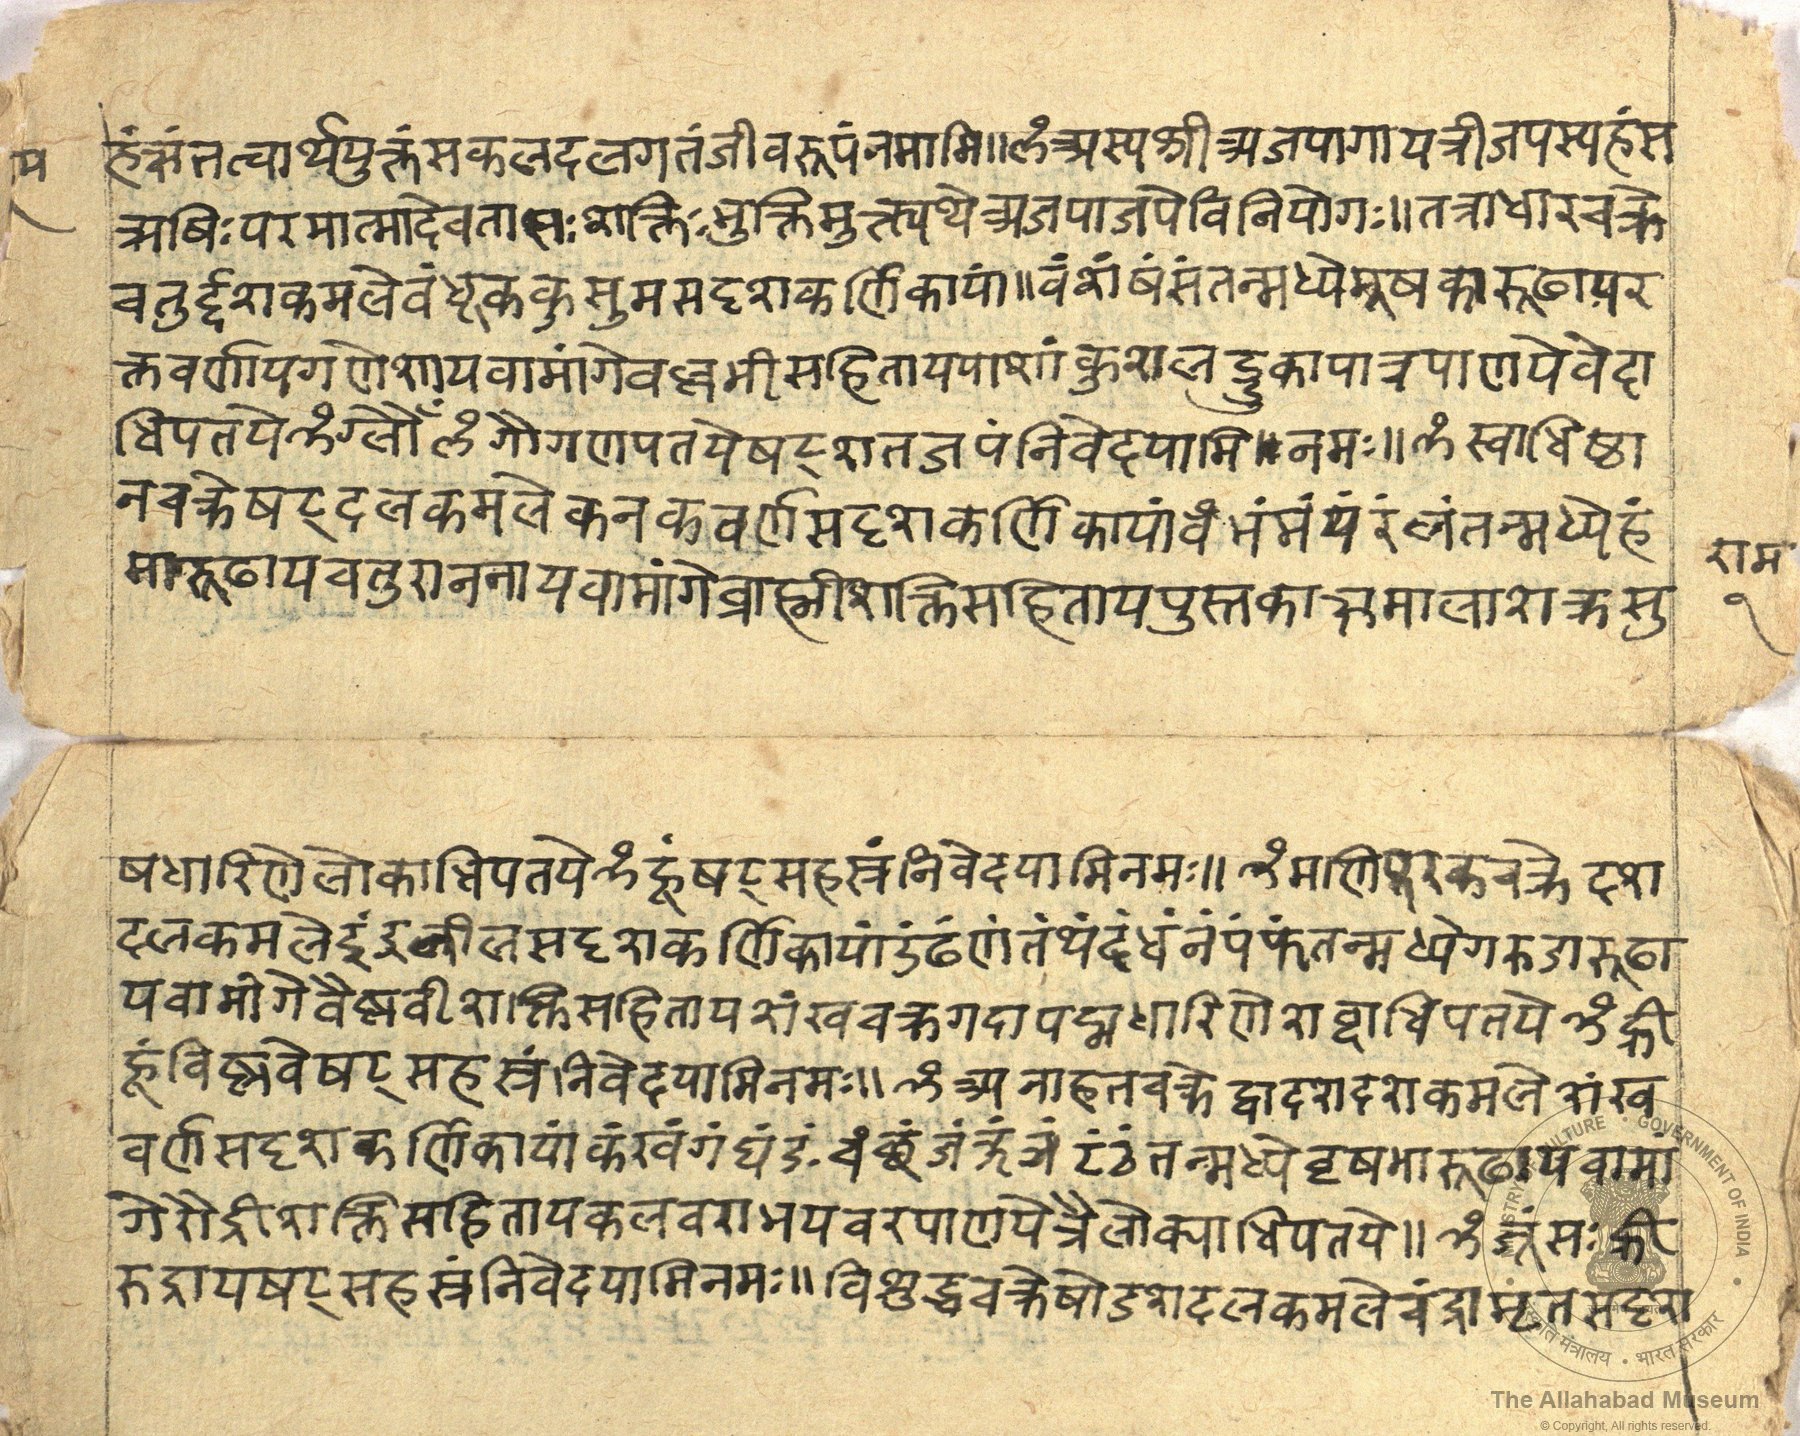 हंक्षंतत्वार्थयुक्तंसकलदलगतंजीवरूपंनमामि॥ॐअस्यश्रीअजपागायत्रीजपस्यहंस
ऋषिःपरमात्मादेवतासःशक्तिःभुक्तिमुक्त्यर्थेअजपाजपेविनियोगः॥तत्राधारचक्रे
चतुर्द्दशकमलेवंधूककुसुमसदृशकर्णिकायां॥वंशंषंसंतन्मध्येमूषकारूढायर
क्तवर्णायगणेशायवामांगेवल्लभीसहितायपाशांकुशलड्डुकापात्रपाणयेवेदा
धिपतयेॐग्लौंॐगौगणपतयेषट्शतजपंनिवेदयामि॥नमः॥ॐस्वाधिष्ठा
नचक्रेषट्दलकमलेकनकवर्णसदृशकर्णिकायांवंभंमंयंरंलंतन्मध्येहं
सारूढायचतुराननायवामांगेब्राह्मीशक्तिसहितायपुस्तकाक्षमालाशक्रसु
राम
१
षधारिणेलोकाधिपतयेॐह्रूंषट्सहस्त्रंनिवेदयामिनमः॥ॐमणिपूरकचक्रेदश
दलकमलेइंद्रनीलसदृशकर्णिकायांडंढंणंतंथंदंधंनंपंफंतन्मध्येगरुडारूढा
यवामांगेवैष्णवीशक्तिसहितायशंखचक्रगदापद्मधारिणेशब्दाधिपतयेॐह्री
ह्रूंविष्णवेषट्सहस्त्रंनिवेदयामिनमः॥ॐअनाहतचक्रेद्वादशदशकमलेशंख
वर्णसदृशकर्णिकायांकंखंगंघंङंचंछंजंझंञंटंठंतन्मध्येवृषभारूढायवामां
गेरौद्रीशक्तिसहितायकलवराभयवरपाणयेत्रैलोक्याधिपतये॥ॐसः
रुद्रायषट्सहस्त्रंनिवेदयामिनमः॥विशुद्धचक्रेषोडशदलकमलेचंद्रामृतसदृश
GOVERNMENT OF INDIA
भारत सरकार
The Allahabad Museum
© Copyright, All rights reserved.